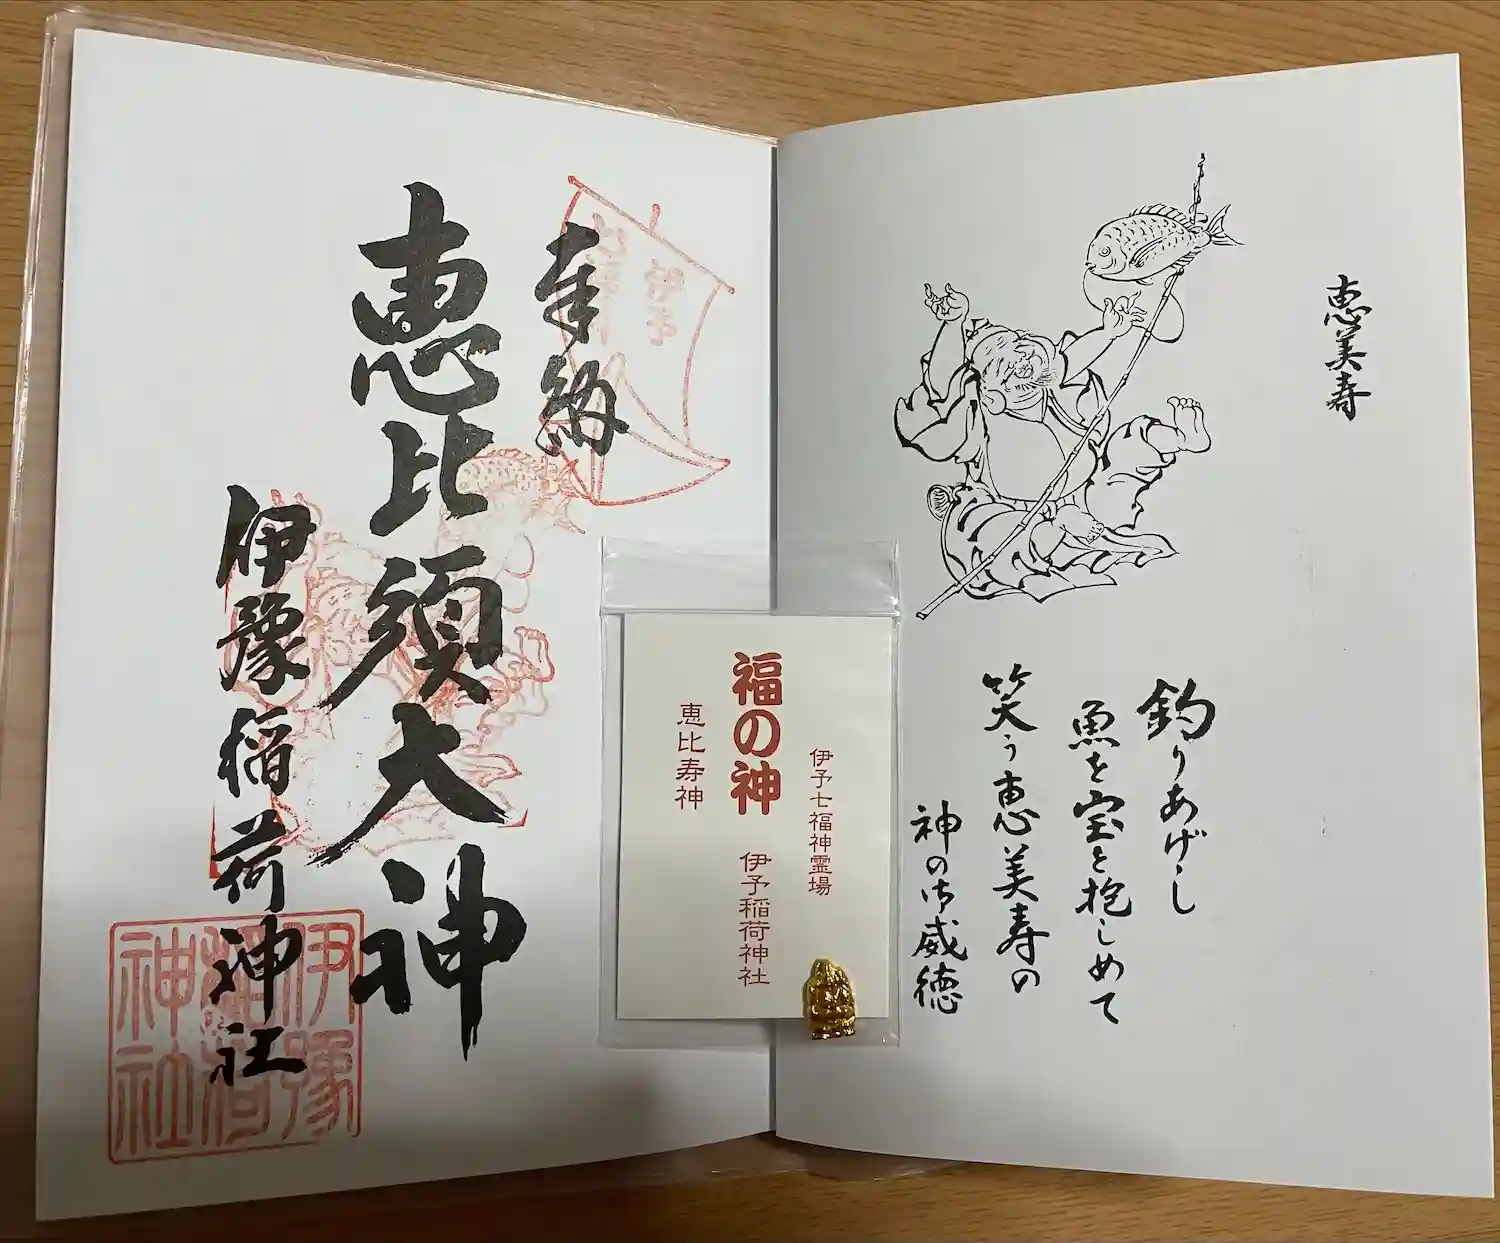 恵美寿
釣りあげし
魚を宝と抱しめて
笑う恵美寿の
神の御威徳
伊予七福神霊場
福の神
伊予稲荷神社
恵比寿神
奉納
伊予
恵比須大神
伊豫稲荷神社
伊豫
稲荷
神社